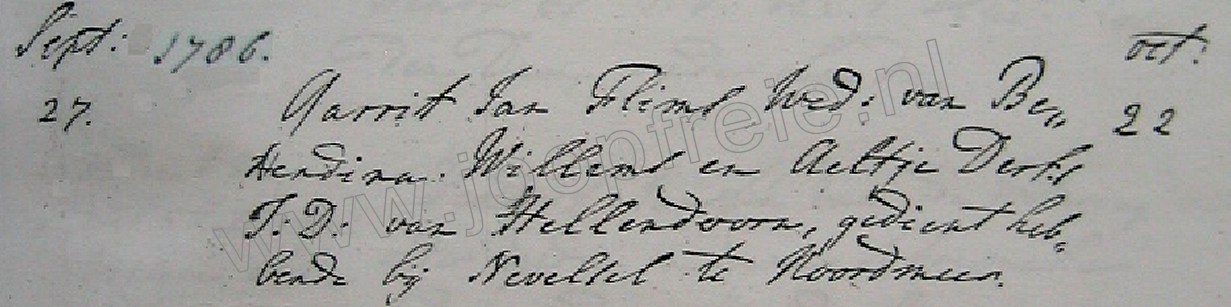 Sept: 1786. oct:
27. Garrit Jan Flims Wed: van Be„ 22
Hendina Willems en Aeltje Derks
J: D: van Hellendoorn, gedient heb„
bende bij Nevelsel te Noordmeer.
www.joopfreie.nl